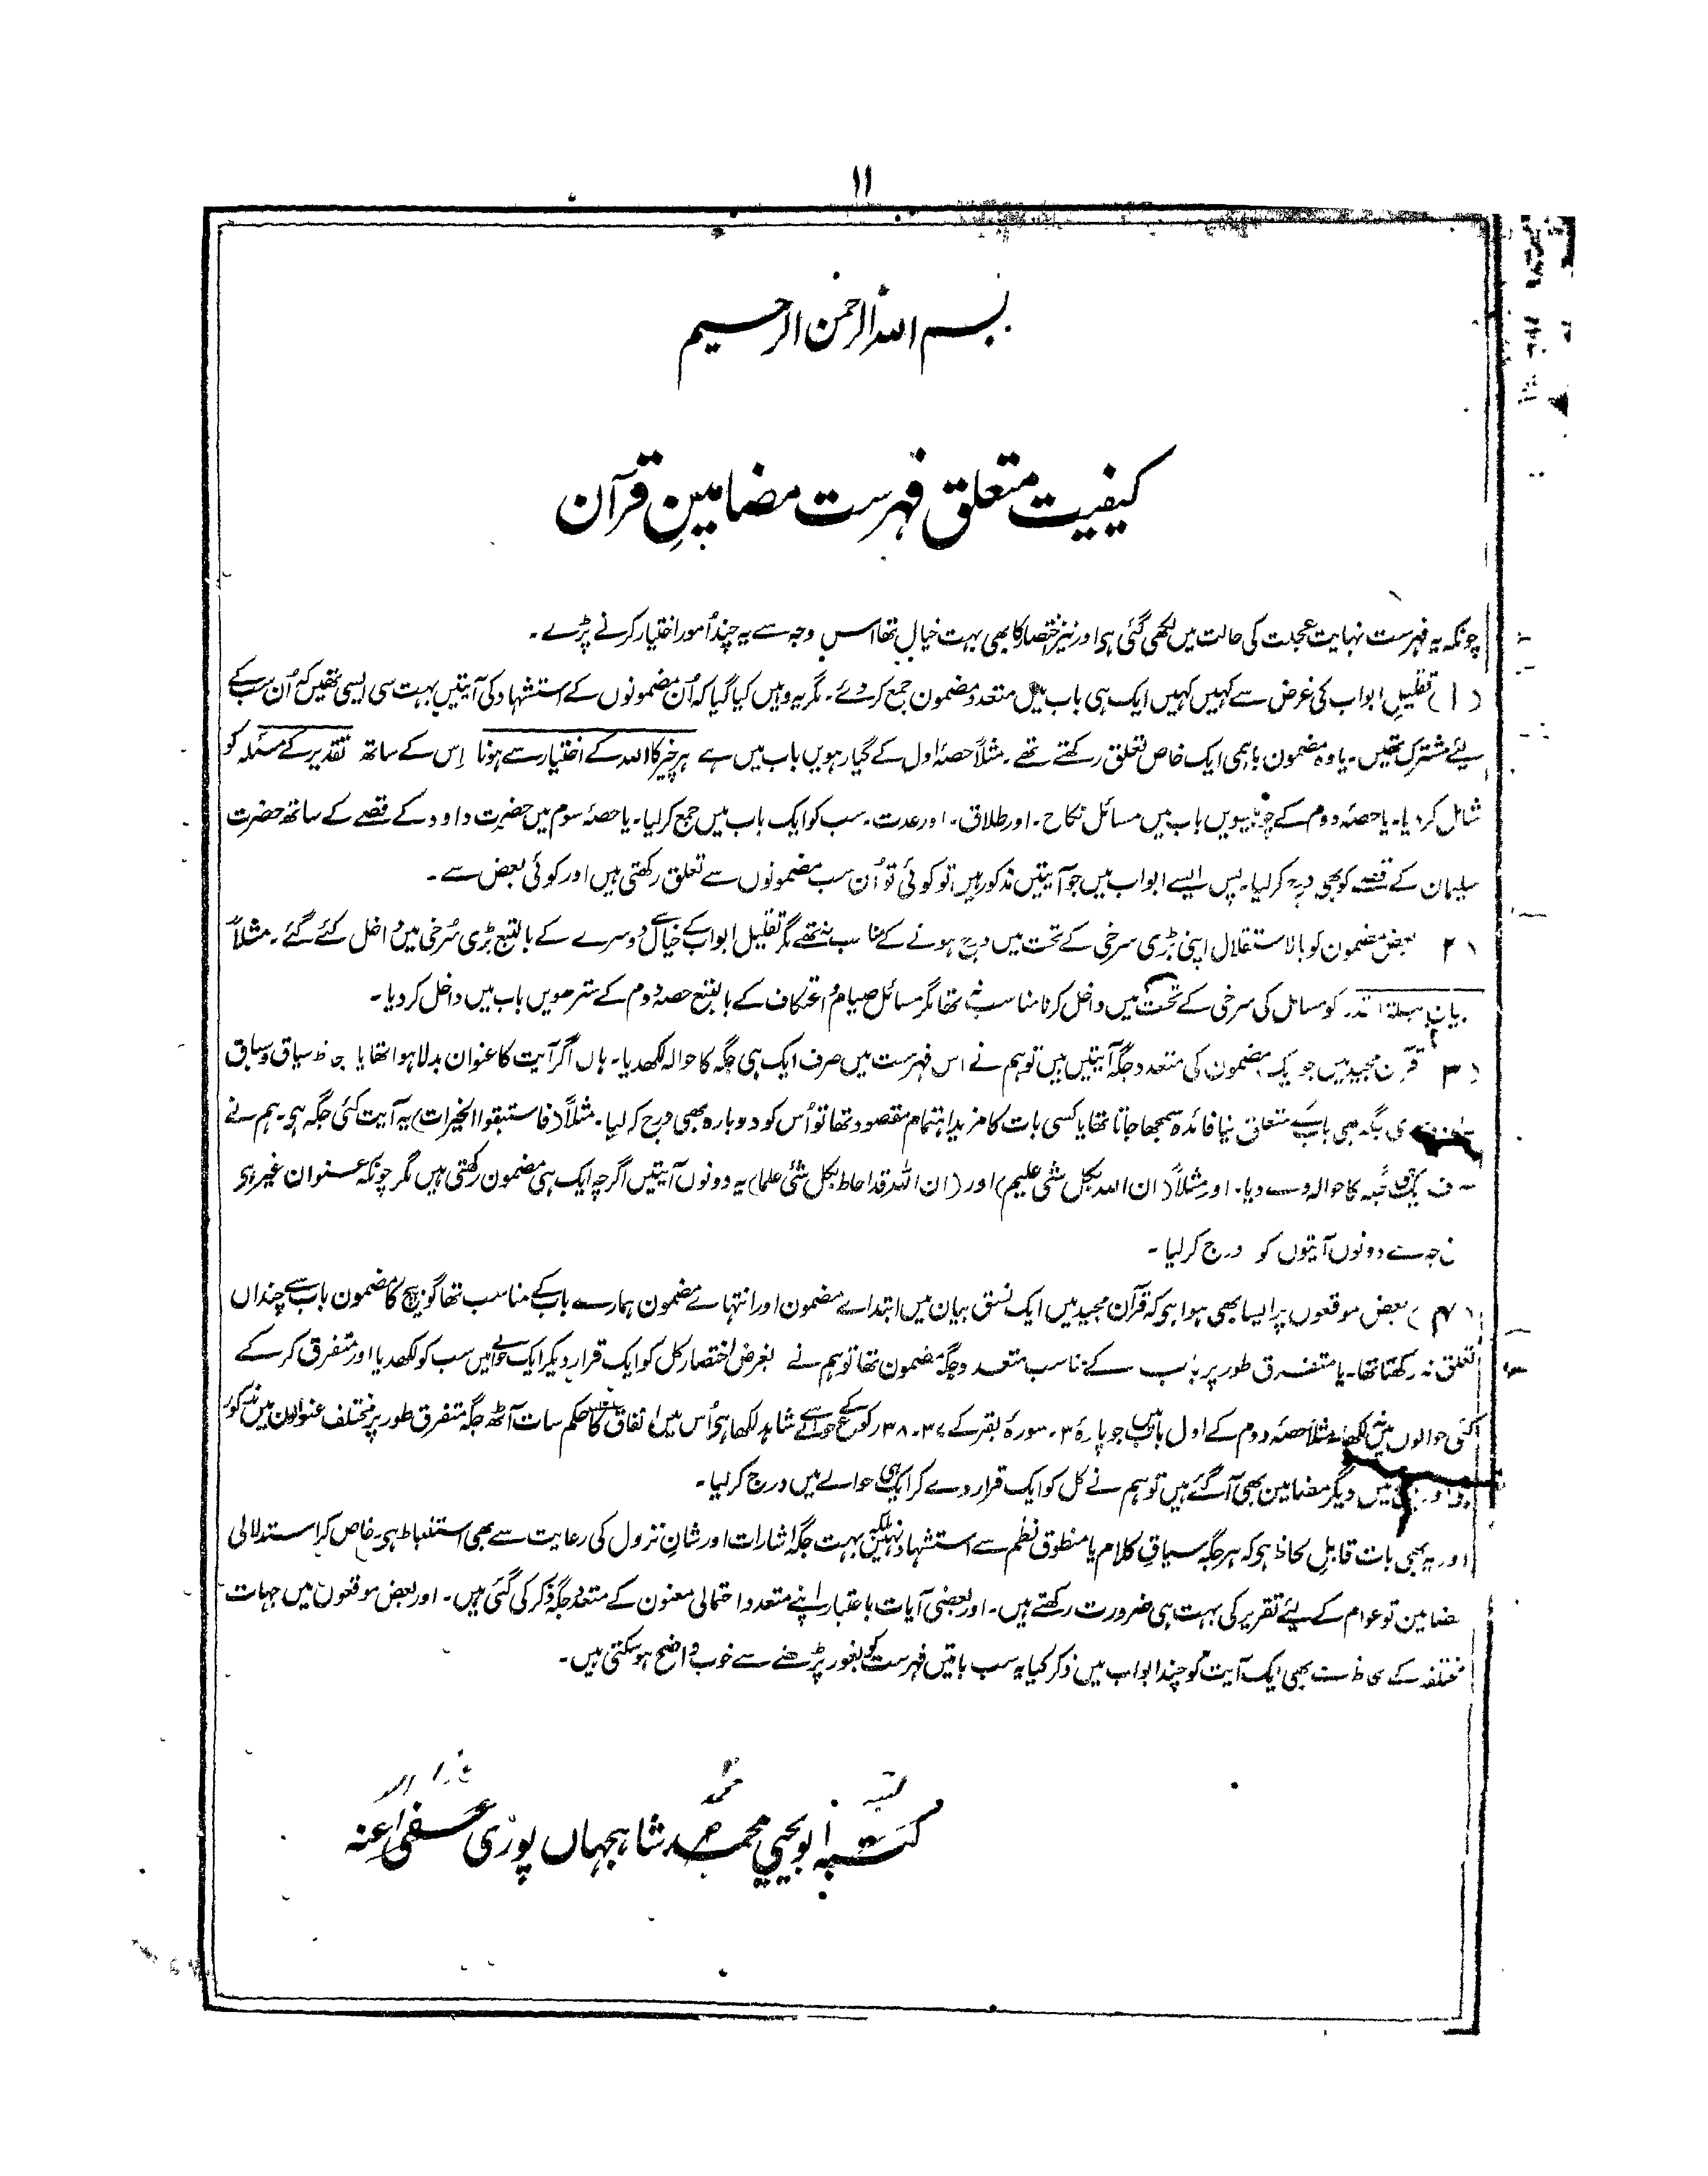 ۱۱
بسم اللہ الرحمن الرحیم
کیفیت متعلق فہرست مضامینِ قرآن
چونکہ یہ فہرست نہایت عجلت کی حالت میں لکھی گئی ہی اور نیز اختصار کا بھی بہت خیال تھا اس وجہ سے یہ چند اُمور اختیار کرنے پڑے۔
(۱) تقلیلِ ابواب کی غرض سے کہیں کہیں ایک ہی باب میں متعدد مضمون جمع کردئے۔ مگر یہ وہیں کیا گیا کہ اُن مضمونوں کے استشہاد کی آیتیں بہت سی ایسی تھیں کہ اُن سب کے
لیئے مشترک تھیں۔ یا وہ مضمون باہمی ایک خاص تعلق رکھتے تھے۔ مثلاً حصۂ اول کے گیارہویں باب میں ہے ہر چیز کا اللہ کے اختیار سے ہونا اِس کے ساتھ تقدیر کے مسئلہ کو
شامل کردیا۔ یا حصۂ دوم کے چوبیسویں باب میں مسائل نکاح۔ اور طلاق۔ اور عدت۔ سب کو ایک باب میں جمع کرلیا۔ یا حصۂ سوم میں حضرت داود کے قصے کے ساتھ حضرت
سلیمان کے قصے کو بھی درج کرلیا۔ پس ایسے ابواب میں جو آیتیں مذکور ہیں تو کوئی تو اُن سب مضمونوں سے تعلق رکھتی ہیں اور کوئی بعض سے۔
۲) بعض مضمون کو بالاستقلال اپنی بڑی سرخی کے تحت میں درج ہونے کے مناسب نہ تھے مگر تقلیل ابواب کے خیال سے دوسرے کے بالتبع بڑی سُرخی میں داخل کئے گئے۔ مثلاً
بیان لیلۃ القدر کو مسائل کی سرخی کے تحت میں داخل کرنا مناسب نہ تھا مگر مسائل صیام و اعتکاف کے بالتبع حصۂ دوم کے سترھویں باب میں داخل کردیا۔
(۳ قرآن مجید میں جو ایک مضمون کی متعدد جگہ آیتیں ہیں تو ہم نے اس فہرست میں صرف ایک ہی جگہ کا حوالہ لکھدیا۔ ہاں اگر آیت کا عنوان بدلا ہوا تھا یا بلحاظ سیاق و سباق
جگہ بھی باب کے متعلق نیا فائدہ سمجھا جاتا تھا یا کسی بات کا مزید اہتمام مقصود تھا تو اُس کو دوبارہ بھی درج کرلیا۔ مثلاً (فاستبقوا الخیرات) یہ آیت کئی جگہ ہی۔ ہم نے
صرف ایک جگہ کا حوالہ دے دیا۔ اور مثلاً (ان اللہ بکل شئی علیم) اور (ان اللہ قد احاط بکل شئی علما) یہ دونوں آیتیں اگرچہ ایک ہی مضمون رکھتی ہیں مگر چونکہ عنوان غیر ہی
دونوں آیتوں کو درج کرلیا۔
(۴) بعض موقعوں پر ایسا بھی ہوا ہی کہ قرآن مجید میں ایک نسق بیان میں ابتداے مضمون اور انتہاے مضمون ہمارے باب کے مناسب تھا گو بیچ کا مضمون باب سے چنداں
تعلق نہ رکھتا تھا۔ یا متفرق طور پر باب کے مناسب متعدد جگہ مضمون تھا تو ہم نے بغرض اختصار کل کو ایک قرار دیکر ایک حوالے میں سب کو لکھدیا اور متفرق کر کے
کئی حوالوں میں نہ لکھا۔ مثلاً حصۂ دوم کے اول باب میں جو پارۂ ۳۔ سورۂ بقر کے ۳۷۔۳۸ رکوع کے حوالے سے شاہد لکھا ہی اُس میں انفاق کا حکم سات آٹھ جگہ متفرق طور پر مختلف عنوان میں مذکور
میں دیگر مضامین بھی آگئے ہیں تو ہم نے کل کو ایک قرار دے کر ایک ہی حوالے میں درج کرلیا۔
اور یہ بھی بات قابلِ لحاظ ہی کہ ہر جگہ سیاقِ کلام یا منطوق نظم سے استشہاد نہیں بلکہ بہت جگہ اشارات اور شانِ نزول کی رعایت سے بھی استنباط ہی۔ خاص کر استدلالی
مضامین تو عوام کے لیئے تقریر کی بہت ہی ضرورت رکھتے ہیں۔ اور بعضی آیات باعتبار اپنے متعدد احتمالی معنون کے متعدد جگہ ذکر کی گئی ہیں۔ اور بعض موقعوں میں جہات
مختلفہ کے لحاظ سے بھی ایک آیت کو چند ابواب میں ذکر کیا یہ سب باتیں فہرست کو بغور پڑھنے سے خوب واضح ہوسکتی ہیں۔
کتبہ ابو یحیی محمد شاہجہاں پوری عفی عنہ